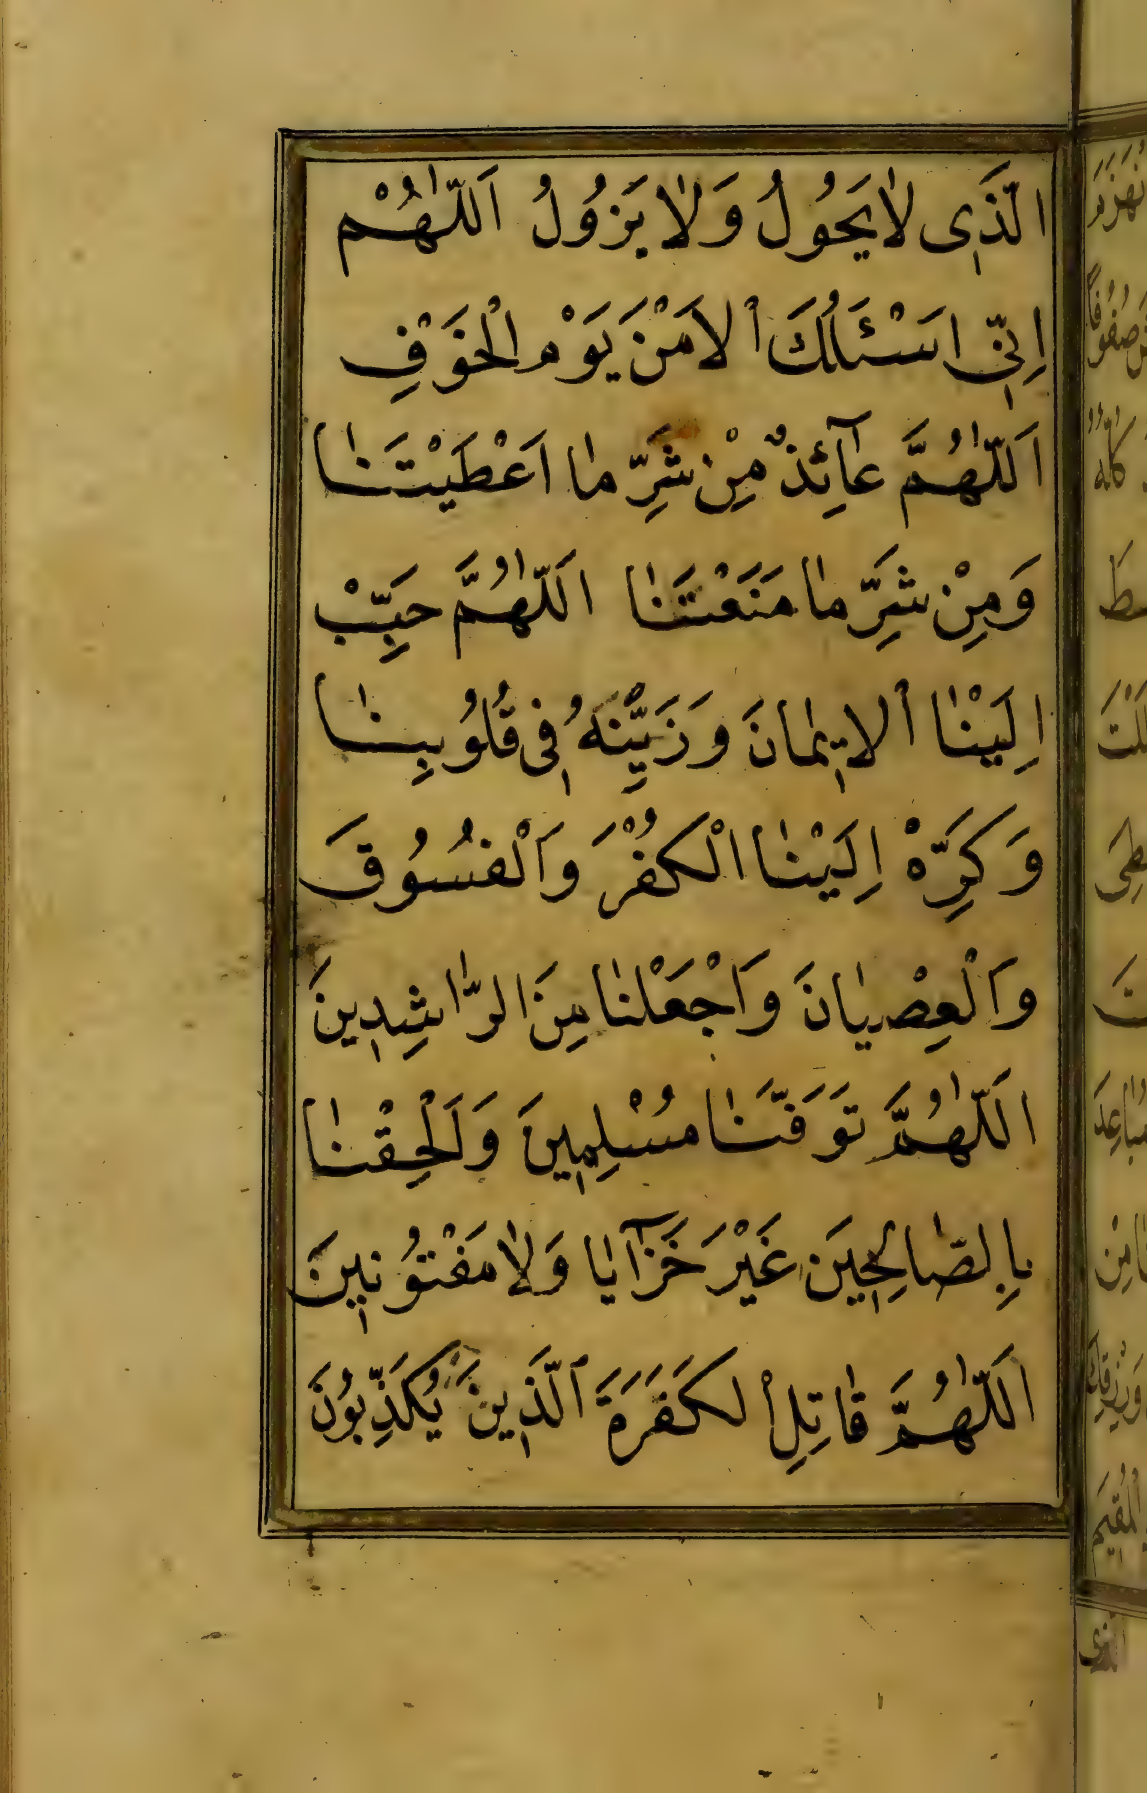 الَّذِى لاٰ يَحُولُ وَلاٰ يَزُولُ اَللّٰهُمْ
اِنّٖى اَسْئَلُكَ اْلاَمْنَ يَوْمَ الْخَوْفِ
اَللّٰهُمَّ عٰآئِذٌ مِنْ شَرِّ مٰا اَعْطَيْتَنٰا
وَمِنْ شَرِّ مٰا مَنَعْتَنٰا اَللّٰهُمَّ حَبِّبْ
اِلَيْنٰا اْلاٖيمٰانَ وَزَيِّنْهُ فٖى قُلُوبِنٰا
وَكَرِّهْ اِلَيْنٰا الْكُفْرَ وَاَلْفُسُوقَ
وَاَلْعِصْيٰانَ وَاَجْعَلْنٰا مِنَ الرّٰاشِدٖينَ
اَللّٰهُمَّ تَوَفَّنٰا مُسْلِمٖينَ وَاَلْحِقْنٰا
بِالصّٰالِحٖينَ غَيْرَ خَزٰآيٰا وَلاٰ مَفْتُونٖينَ
اَللّٰهُمَّ قٰاتِلِ اْلكَفَرَةَ اَلَّذٖينَ يُكَذِّبُونَ
الذى